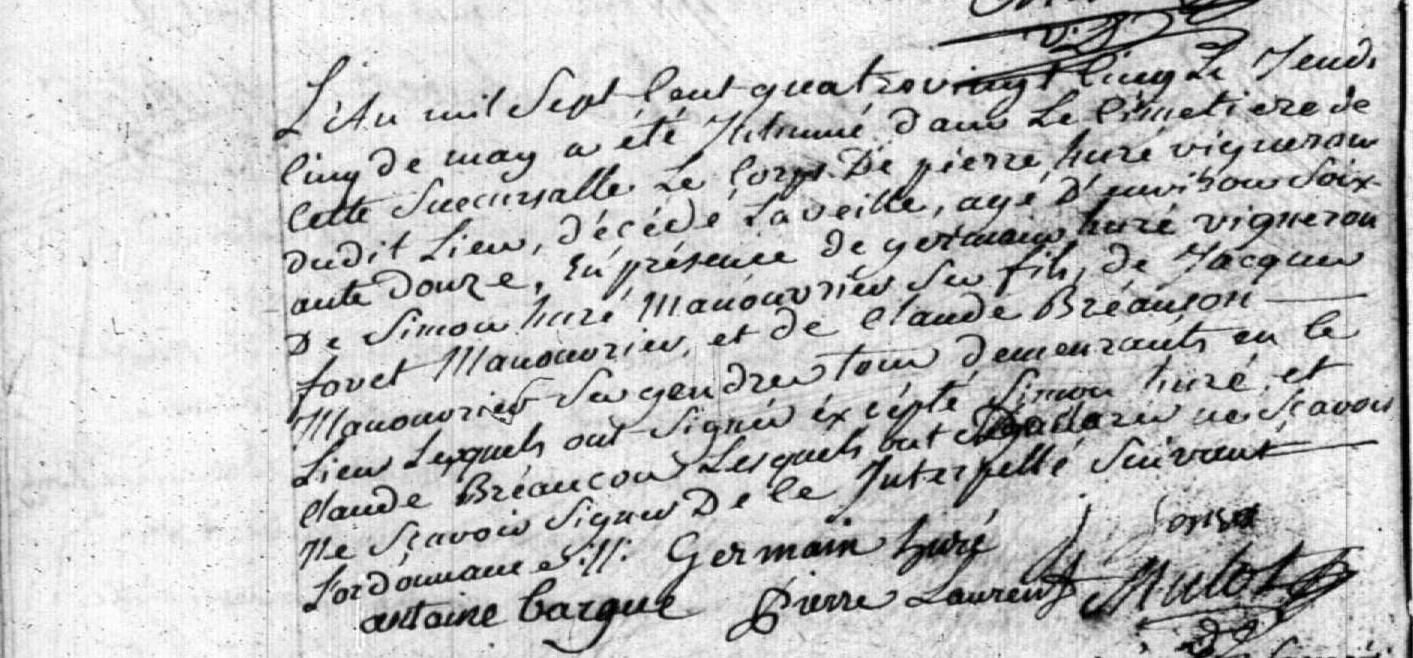 L'An mil Sept Cent quatrevingt Cinq Le Jeudi
Cinq de may a été Inhumé dans Le Cimetiere de
Cette Succursalle Le Corps De pierre huré vigneron
dudit Lieu, décédé La veille, agé D'environ Soix-
ante douze, En présence de germain huré vigneron
De Simon huré Manouvrier Ses fils, de Jacques
fovet Manouvrier, et de Claude Bréançon
Manouvrier Ses gendres tous demeurants en ce
Lieu Lesquels ont Signés éxcépté Simon huré et
Claude Bréancon Lesquels ont Declarer ne Scavoir
Ne Scavoir Signer De ce Interpellé Suivant
L'ordonnance ./. Germain huré
antoine Cargue Pierre Laurent Mulot